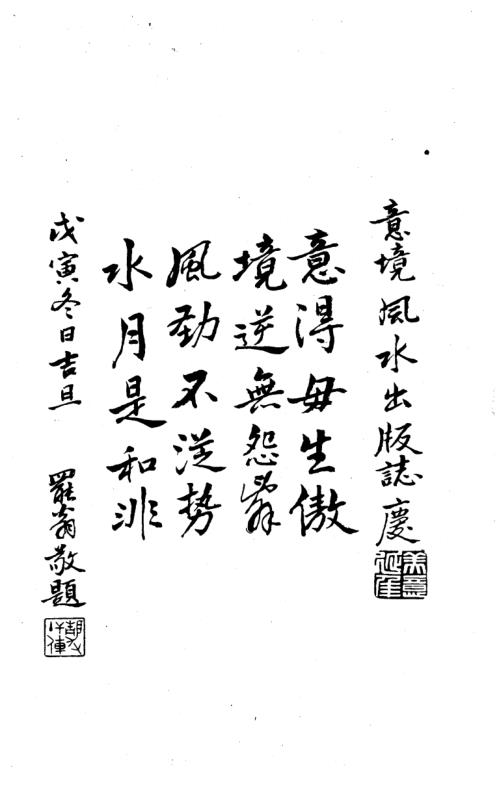 意境風水出版誌慶
意得毋生傲
境逆無怨辭
風勁不從勢
水月是和非
戊寅冬日吉旦
羅翁敬題